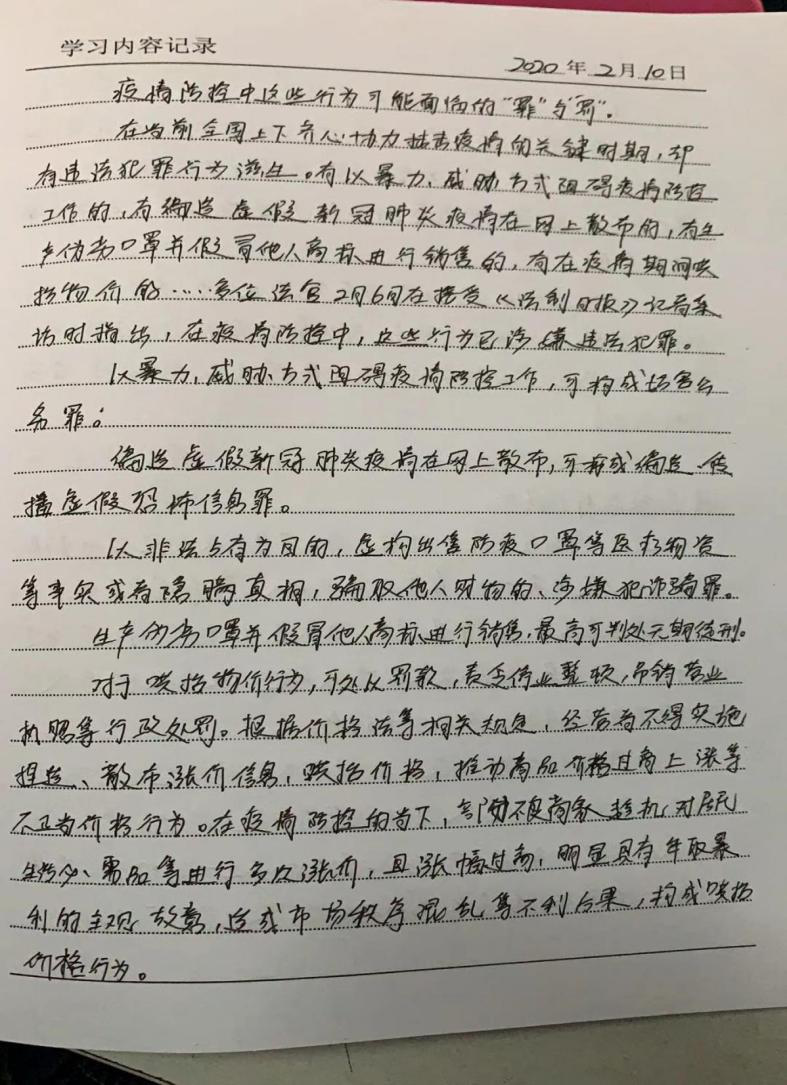 学习内容记录
2020年2月10日
疫情防控中这些行为可能面临的“罪”与“罚”.
在当前全国上下齐心协力抗击疫情的关键时期，却
有违法犯罪行为滋生。有以暴力、威胁方式阻碍疫情防控
工作的，有编造虚假新冠肺炎疫情在网上散布的，有生
产伪劣口罩并假冒他人商标进行销售的，有在疫情期间哄
抬物价的……多位法官2月6日在接受《法制日报》记者采
访时指出，在疫情防控中，这些行为已涉嫌违法犯罪。
以暴力、威胁方式阻碍疫情防控工作，可构成妨害公
务罪；
编造虚假新冠肺炎疫情在网上散布，可构成编造、传
播虚假恐怖信息罪。
以非法占有为目的，虚构出售防疫口罩等医疗物资
等事实或者隐瞒真相，骗取他人财物的、涉嫌犯诈骗罪。
生产伪劣口罩并假冒他人商标进行销售，最高可判处无期徒刑。
对于哄抬物价行为，可处以罚款，责令停业整顿，吊销营业
执照等行政处罚。根据价格法等相关规定，经营者不得实施
捏造、散布涨价信息，哄抬价格，推动商品价格过高上涨等
不正当价格行为。在疫情防控的当下，部分不良商家趁机对居民
生活必需品等进行多次涨价，且涨幅过高，明显具有牟取暴
利的主观故意，造成市场秩序混乱等不利后果，构成哄抬
价格行为。